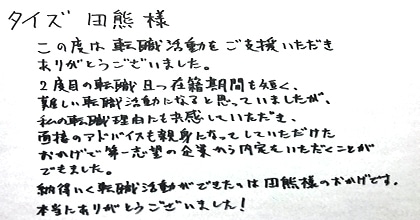 タイズ 田熊様
この度は転職活動をご支援いただき
ありがとうございました。
2度目の転職且つ在籍期間も短く、
難しい転職活動になると思っていましたが、
私の転職理由にも共感していただき、
面接のアドバイスも親身になってしていただけた
おかげで第一志望の企業から内定をいただくことが
できました。
納得いく転職活動ができたのは田熊様のおかげです。
本当にありがとうございました!